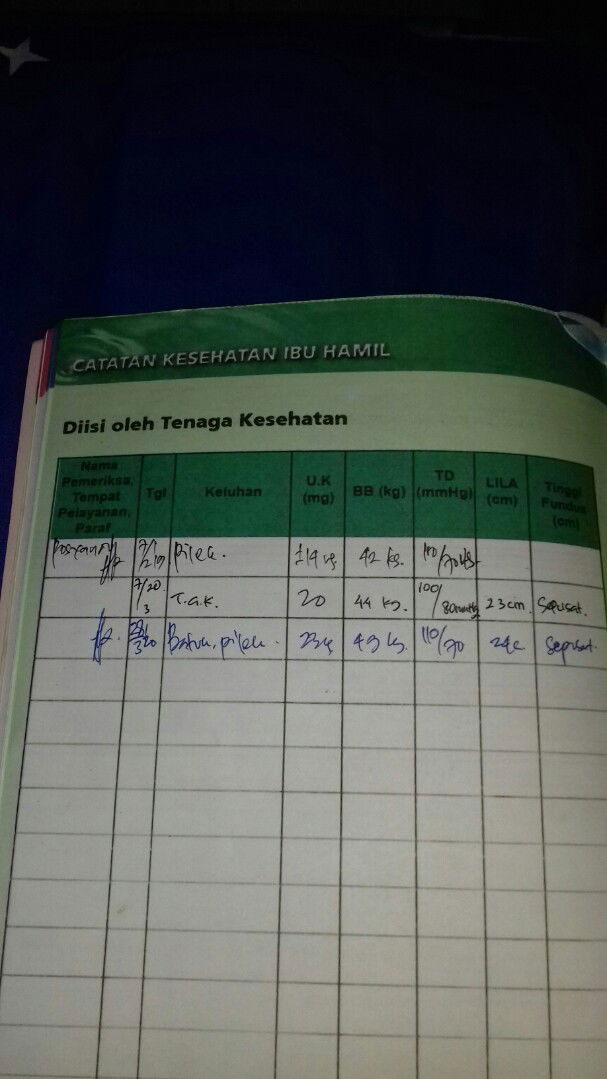 CATATAN KESEHATAN IBU HAMIL
Diisi oleh Tenaga Kesehatan
Nama Pemeriksa, Tempat Pelayanan, Paraf
Tgl
Keluhan
U.K (mg)
BB (kg)
TD (mmHg)
LILA (cm)
Tinggi Fundus (cm)
Pilek. 42 kg.
7/20 3 T.a.k. 20 44 kg. 100/80mmHg 23 cm. Sepusat.
Batuk, pilek. 110/70 Sepusat.